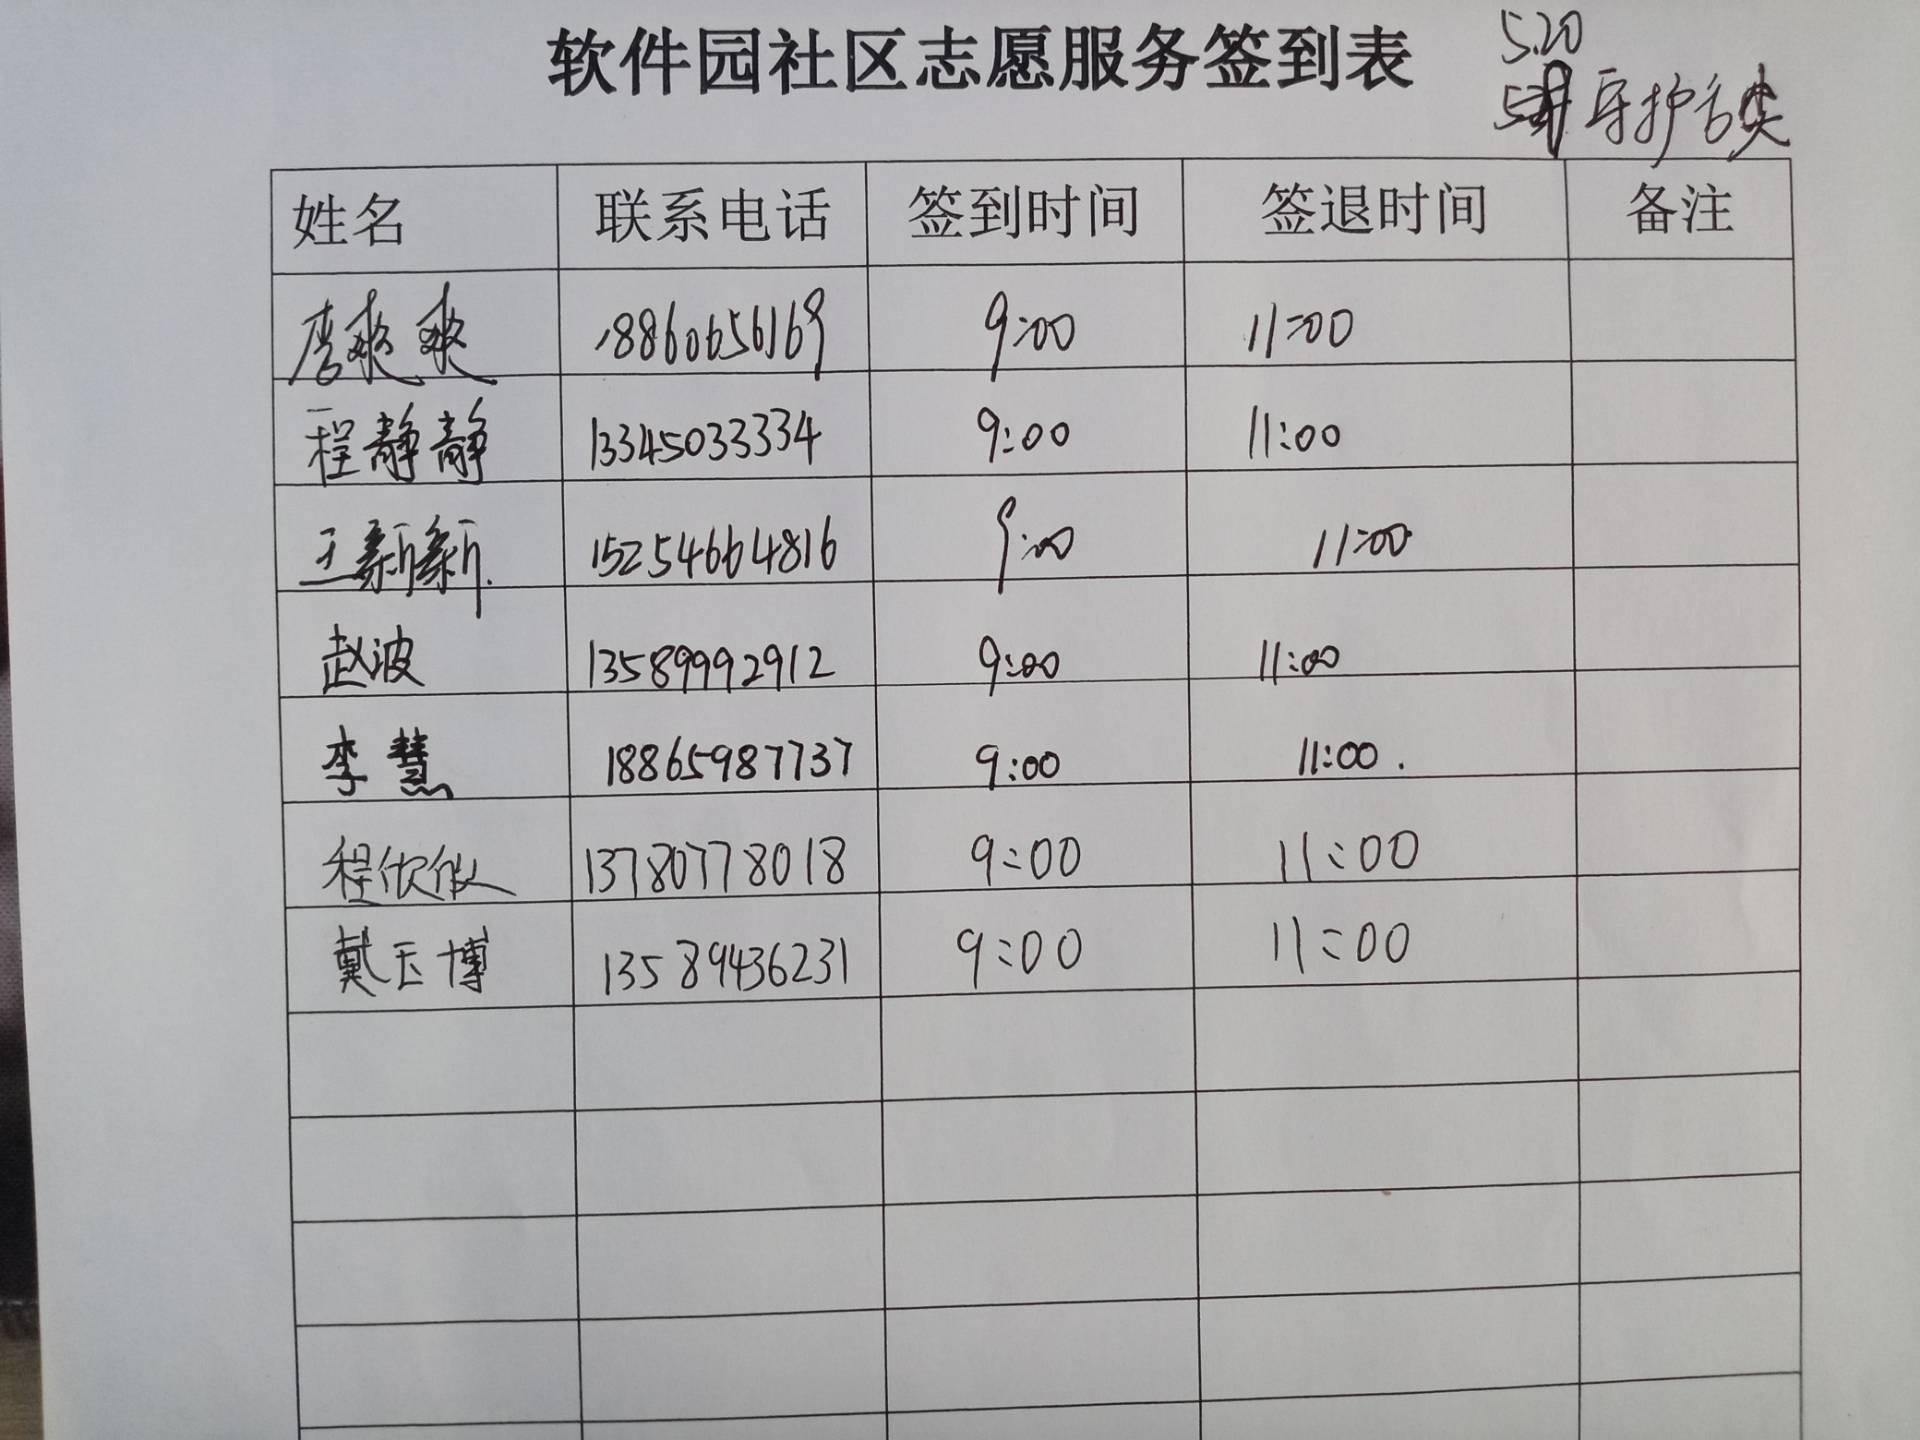 软件园社区志愿服务签到表
5.20
守护舌尖
姓名 联系电话 签到时间 签退时间 备注
唐爽爽 18860656169 9:00 11:00
程静静 13345033334 9:00 11:00
王新新 15254664816 9:00 11:00
赵波 13589992912 9:00 11:00
李慧 18865987737 9:00 11:00.
程欣 13780778018 9:00 11:00
戴玉博 13589436231 9:00 11:00